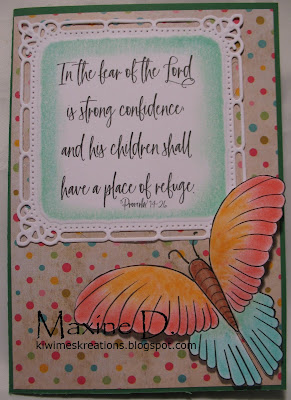 In the fear of the Lord
is strong confidence:
and his children shall
have a place of refuge.
Proverbs 14:26
Maxine D.
kiwimeskreations.blogspot.com